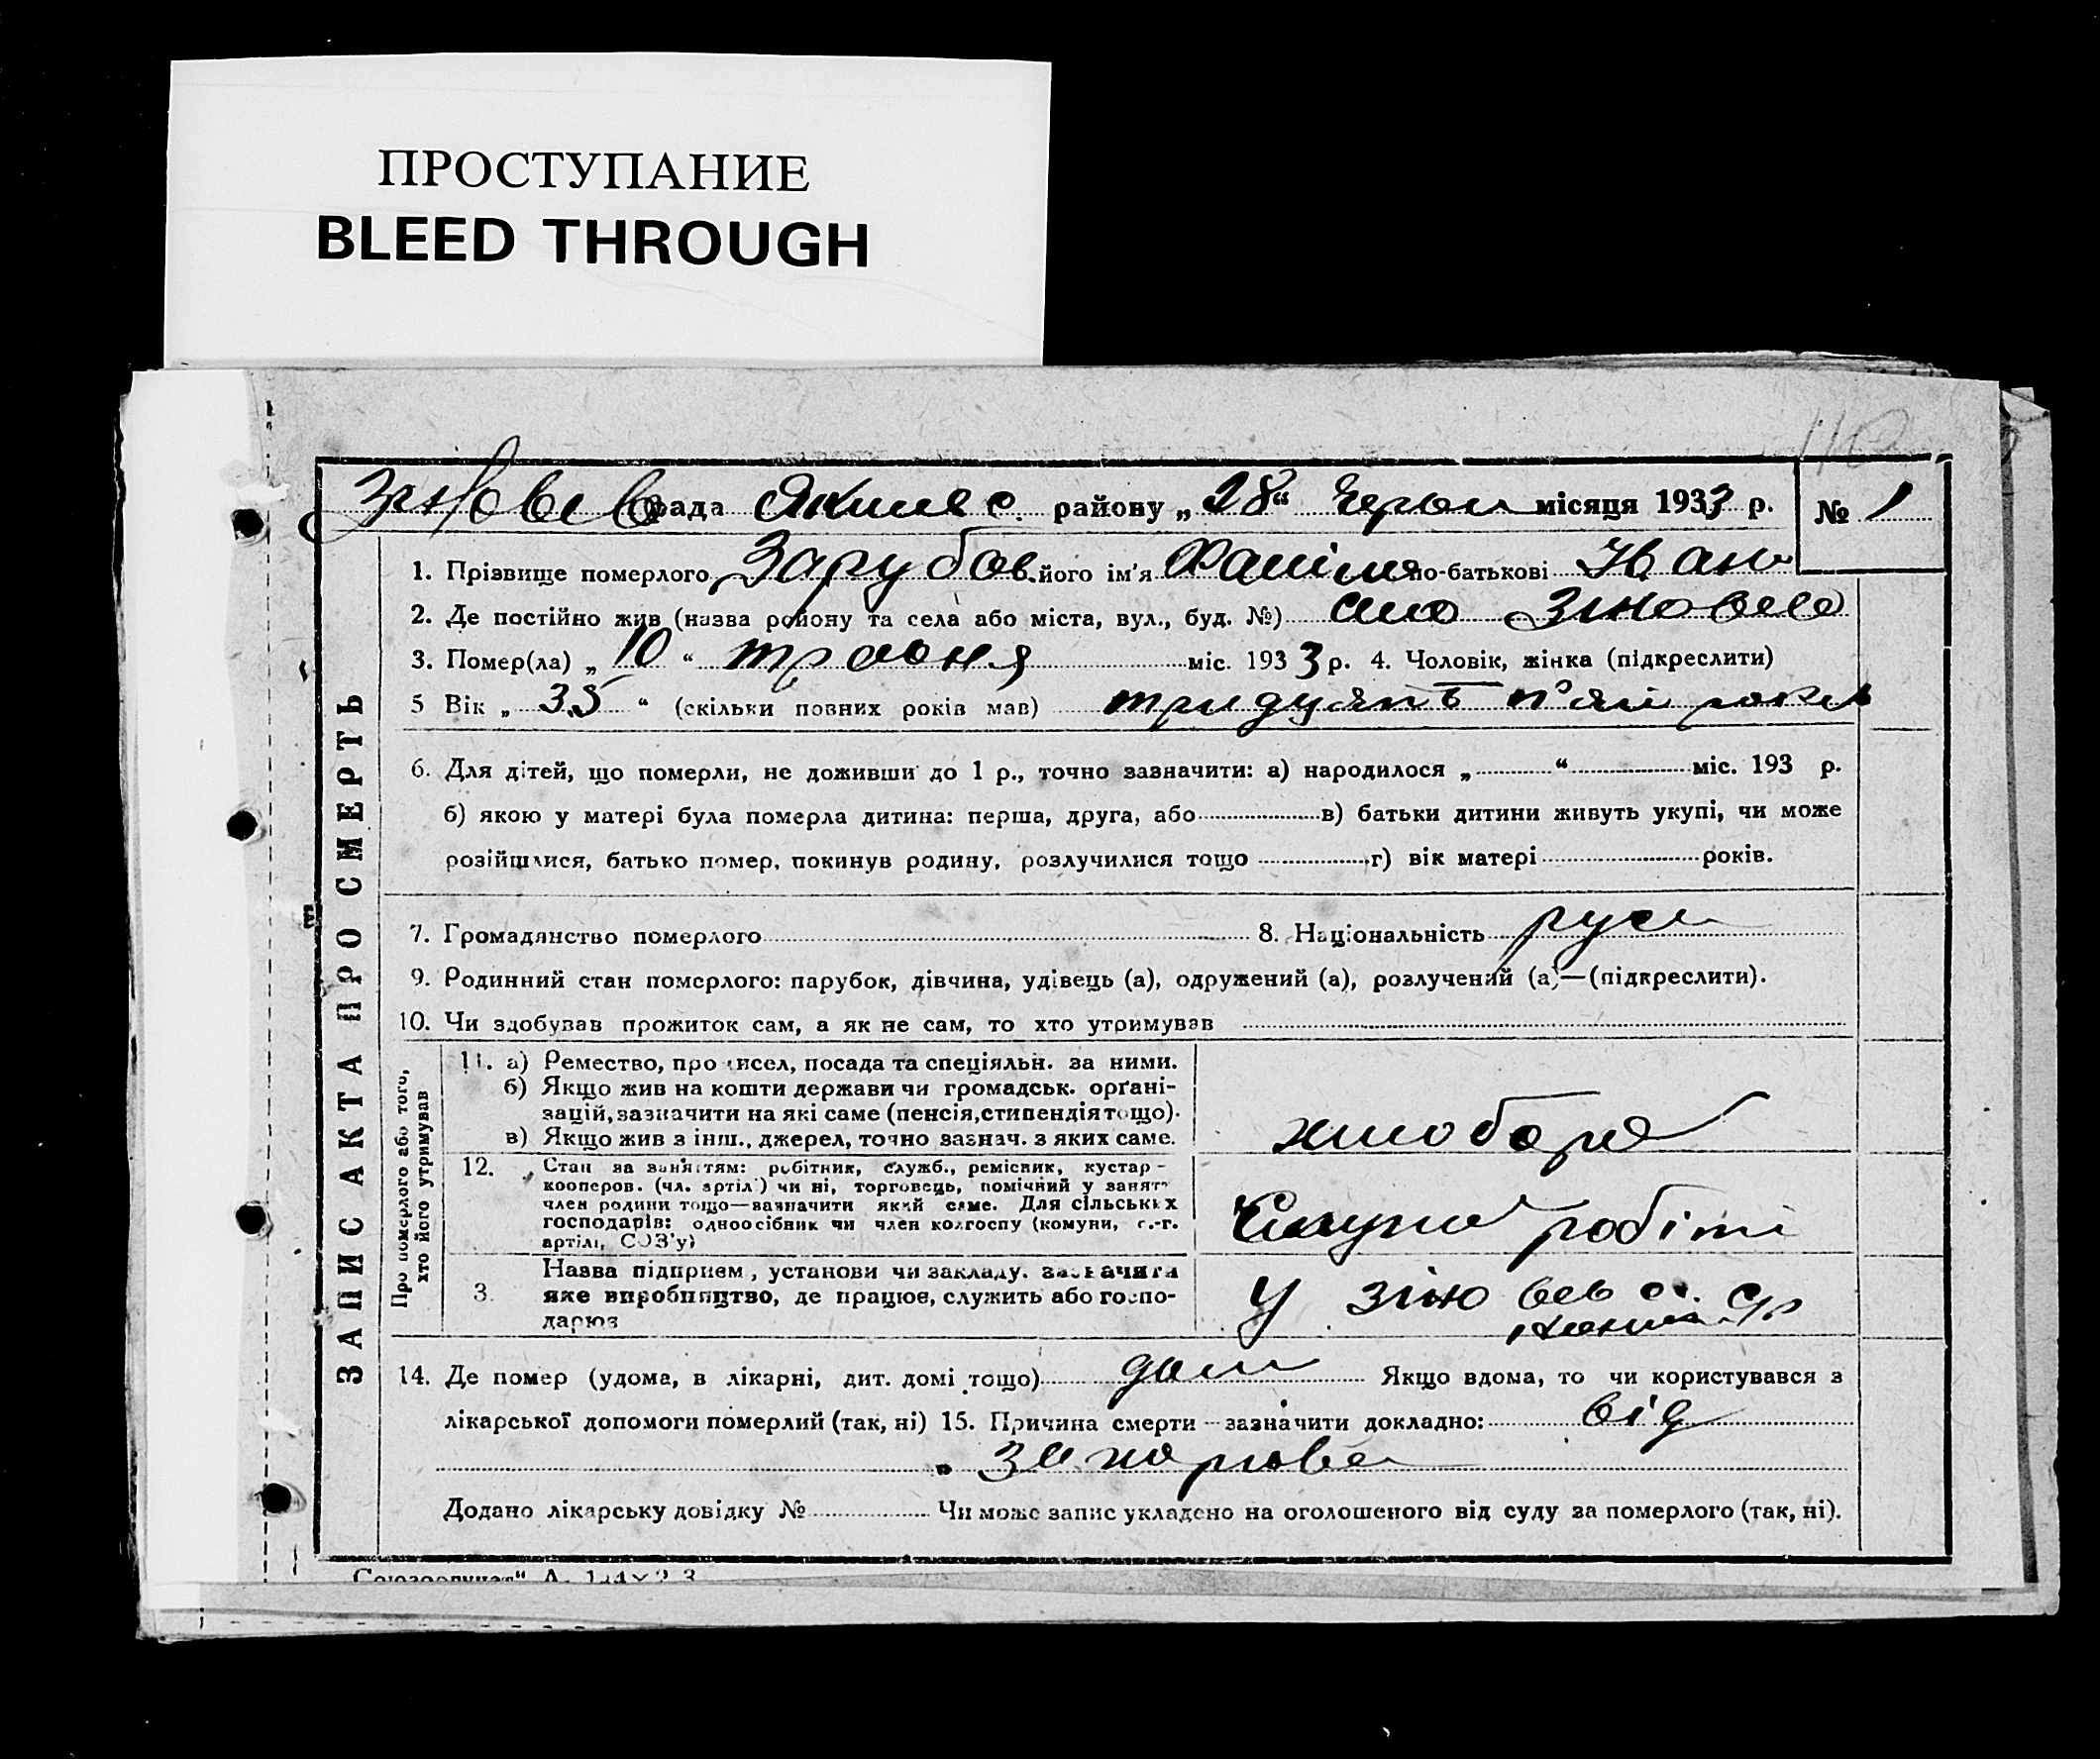 ПРОСТУПАНИЕ
BLEED THROUGH
110
рада районy „28“ Черв місяця 1933 р. № 1
1. Прізвище померлого Зарубов його ім'я по-батькові Іван
2. Де постійно жив (назва району та села або міста, вул., буд. №) село Зіновево
3. Помер(ла) „10“ травня міс. 1933 р. 4. Чоловік, жінка (підкреслити)
5 Вік „35“ (скільки повних років мав) тридцять п'ять роки
6. Для дітей, що померли, не доживши до 1 р., точно зазначити: а) народилося „ “ міс. 193 р.
б) якою у матері була померла дитина: перша, друга, або в) батьки дитини живуть укупі, чи може
розійшлися, батько помер, покинув родину, розлучилися тощо г) вік матері років.
7. Громадянство померлого 8. Національність руск
9. Родинний стан померлого: парубок, дівчина, удівець (а), одружений (а), розлучений (а)—(підкреслити).
10. Чи здобував прожиток сам, а як не сам, то хто утримував
ЗАПИС АКТА ПРО СМЕРТЬ
Про померлого або того, хто його утримував
11. а) Ремество, промисел, посада та спеціяльн. за ними.
б) Якщо жив на кошти держави чи громадськ. орґані-
зацій, зазначити на які саме (пенсія, стипендія тощо).
в) Якщо жив з інш., джерел, точно зазнач. з яких саме.
хлібороб
12. Стан за заняттям: робітник, служб., ремісник, кустар-
кооперов. (чл. артіл) чи ні, торговець, помічний у занятт
член родини тощо—зазначити який саме. Для сільських
господарів: одноосібник чи член колгоспу (комуни, с.-г.
артілі, СОЗ'у)
робіті
3. Назва підприєм, установи чи закладу. зазначити
яке виробництво, де працює, служить або госпо-
дарює
У
14. Де помер (удома, в лікарні, дит. домі тощо) дом Якщо вдома, то чи користувався з
лікарської допомоги померлий (так, ні) 15. Причина смерти—зазначити докладно: від
Додано лікарську довідку № Чи може запис укладено на оголошеного від суду за померлого (так, ні).